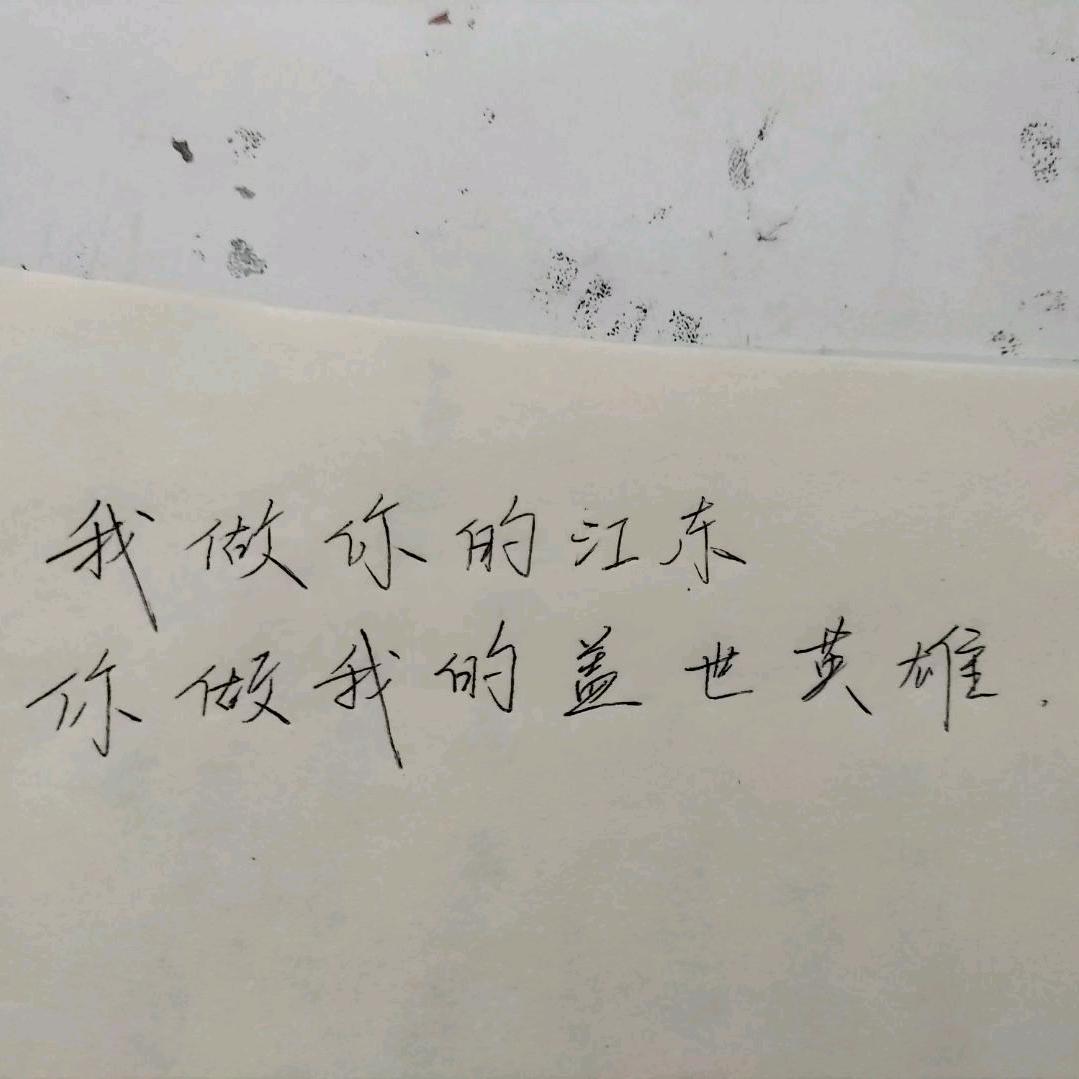 我做你的江东
你做我的盖世英雄.